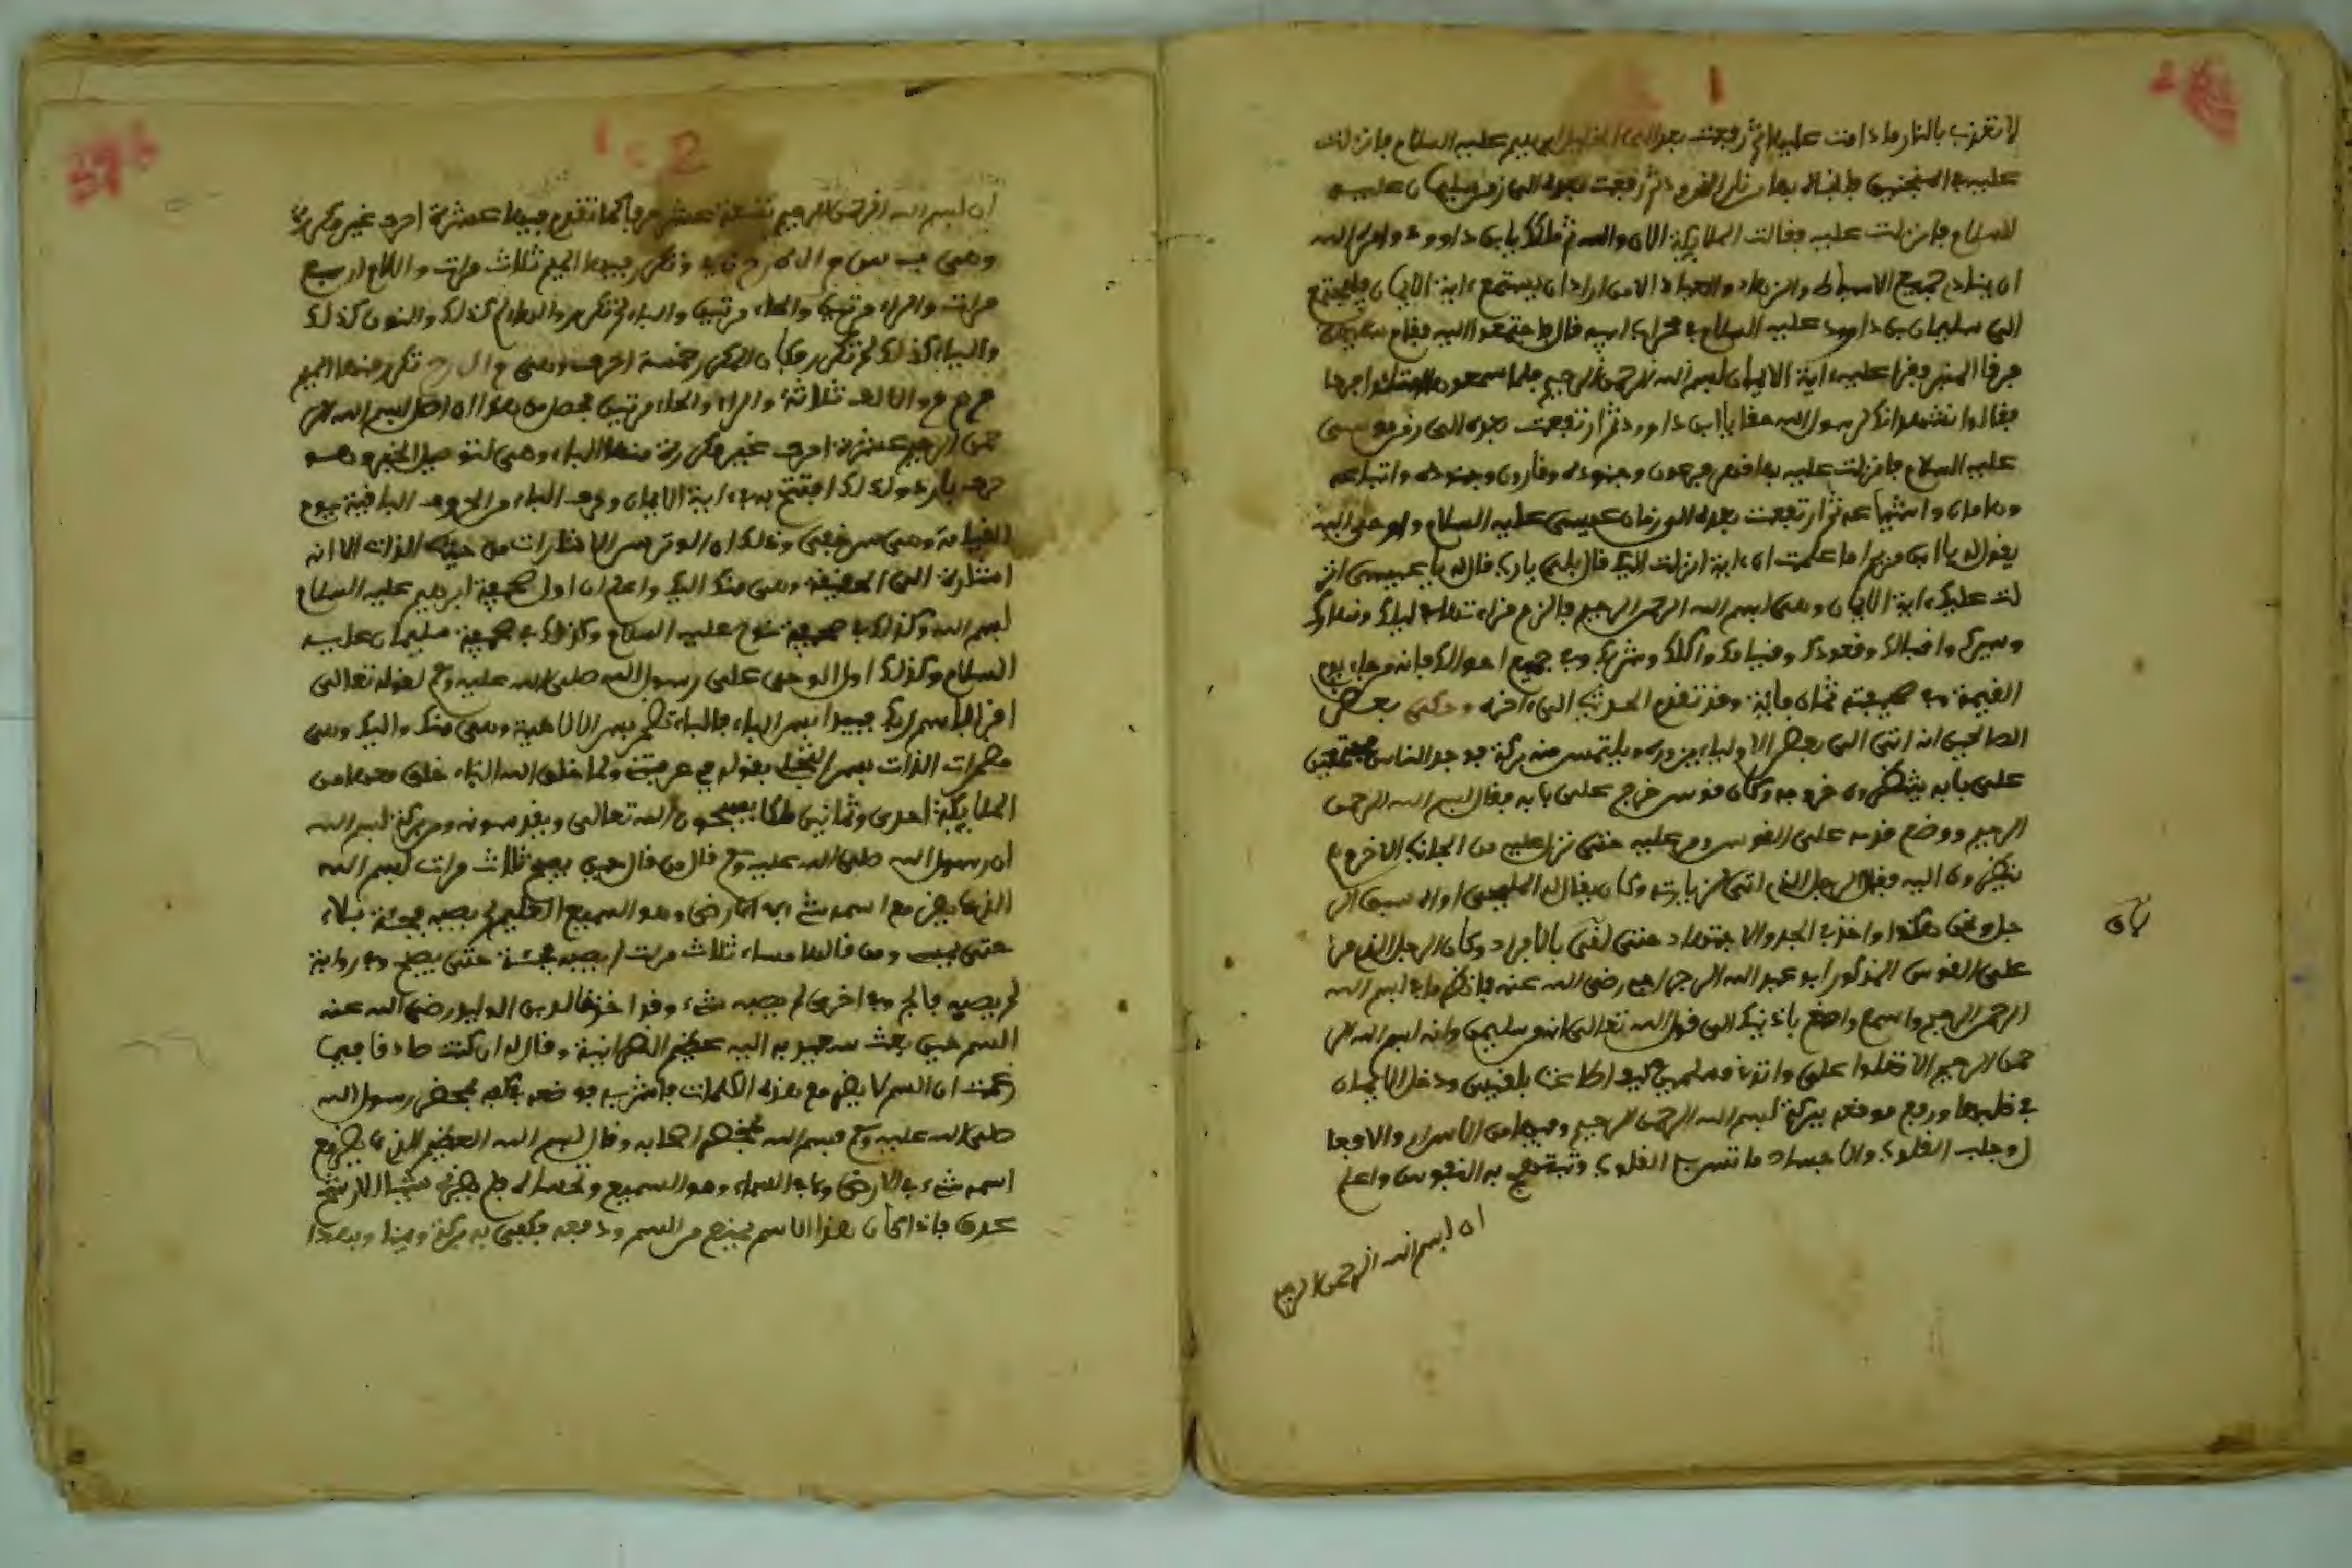 1
لا تعذب بالنار ما دامت عليها ثم رفعت بعده الى ابراهيم عليه السلام فانزلت
عليه في المنجنيق فانجاه بها من نار النمرود ثم رفعت بعده الى زمن سليمان عليه
السلام فانزلت عليه فقالت الملايكة الان والله تم ملكك يابن داوود وامره الله
ان ينادي جميع الاسباط والزهاد والعباد الا من اراد ان يستمع ءاية الايمان فليجتمع
الى سليمان بن داوود عليه السلام في محراب ابيه قال فاجتمعوا اليه فقام سليمان
فرقا المنبر وقرا عليهم ءاية الايمان بسم الله الرحمن الرحيم فلما سمعوها امتلئوا فرحا
فقالوا نشهد انك رسول الله حقا يا ابن داوود ثم ارتفعت بعده الى زمن موسى
عليه السلام فانزلت عليه بها قهر فرعون وجنوده وقارون وجنوده واتباعه
وهامان واشياعه ثم ارتفعت بعده الى زمان عيسى عليه السلام واوحى الله
يقول له يا ابن مريم اما علمت اي ءاية انزلت اليك قال بلى يا رب قال له يا عيسى انز
لت عليك ءاية الايمان وهي بسم الله الرحمن الرحيم فالزم قراءتها في ليلك ونهارك
وسيرك واقبالك وقعودك وقيامك واكلك وشربك وفي جميع احوالك فانه من جاء يوم
القيمة وفي صحيفته ثمان ماية وقد تقدم الحديث الى ءاخره وحكي بعض
الصالحين انه اتى الى بعض الاولياء يزوره ويلتمس منه بركة فوجد الناس مجتمعين
على بابه ينتظرون خروجه وكان فرسه خرج على بابه فقال بسم الله الرحمن
الرحيم ووضع قدمه على القوس ومر عليه حتى نزل عليه من الجانب الاخر وهم
ينظرون اليه فقال الرجل الذي اتى لزيارته
جل ونحن هكذا واخذ في الجد والاجتهاد حتى لحق بالافراد وكان الرجل الذي مر
على القوس المذكور ابو عبد الله الرجراجي رضي الله عنه فانظر ما في بسم الله
الرحمن الرحيم واسمع واصغ باذنيك الى قول الله تعالى انه من سليمن وانه بسم الله الر
حمن الرحيم الا تعلوا علي واتوني مسلمين كيف اطاعت بلقيس ودخل الايمان
في قلبها ورفع موقعه ببركة بسم الله الرحمن الرحيم وفيها من الاسرار والافعا
ل وجلب القلوب والاجساد ما تسر به القلوب وتبتهج به النفوس واعلم
ان بسم الله الرحمن الرحيم
2
ان بسم الله الرحمن الرحيم تسعة عشر حرفا كما تقدم فيها عشرة احرف غير مكررة
وهي ب س م ا ل ه ر ح ن ي وتكرر فيها الميم ثلاث مرات واللام اربع
مرات والراء مرتين والحاء مرتين والباء لم تكرر والهاء كذلك والنون كذلك
والياء كذلك لم تكرر فكان المكرر خمسة احرف وهي م ا ل ر ح تكرر منها الميم
م م م والالف ثلاثة والراء والحاء مرتين فحصل من هذا ان اصل بسم الله الر
حمن الرحيم عشرة احرف غير مكررة منها الباء وهي لتوصيل الخير وهو
حرف بارد ولذلك افتتح به ءاية الايمان وحرف الباء من الحروف الباقية يوم
القيامة وهي سر خفي وذلك ان الوتر سر الاشارات من حيث الذات الا انه
اشارة الى الحقيقة وهي منك اليك واعلم ان اول صحيفة ابرهيم عليه السلام
بسم الله وكذلك في صحيفة نوح عليه السلام وكذلك في صحيفة سليمان عليه
السلام وكذلك اول الوحي على رسول الله صلى الله عليه وسلم لقوله تعالى
اقرا باسم ربك فبدا بسر الباء فالباء تظهر سر الالاهية وهي منك واليك وهي
مظهرات الذات ولما خلق الله الباء خلق معها من
الملايكة احدى وثمانين ملكا يسبحون الله تعالى ويقدسونه ومن بركة بسم الله
ان رسول الله صلى الله عليه وسلم قال من قال حين يصبح ثلاث مرات بسم الله
الذي لا يضر مع اسمه شيء في الارض وهو السميع العليم لم يصبه فجئة بلاء
حتى يمسي ومن قالها مساء ثلاث مرات لم يصبه فجئة حتى يصبح وفي رواية
لم يصبه فالج وفي اخرى لم يصبه شيء وقد اخذ خالد بن الوليد رضي الله عنه
السم حين بعث به اليه عظيم النصرانية وقال له ان كنت صادقا فيما
زعمت ان السم لا يضر مع هذه الكلمات فاشربه فوضعه في كفه بمحضر رسول الله
صلى الله عليه وسلم بمحضر اصحابه وقال بسم الله العظيم الذي لا يضر مع
اسمه شيء في الارض ولا في السماء وهو السميع العليم فلم يضره شيئا الا رشح
عرق فاذا كان هذا الاسم يمنع من السم ودفعه فكفى به بركة ويمنا وبهذا